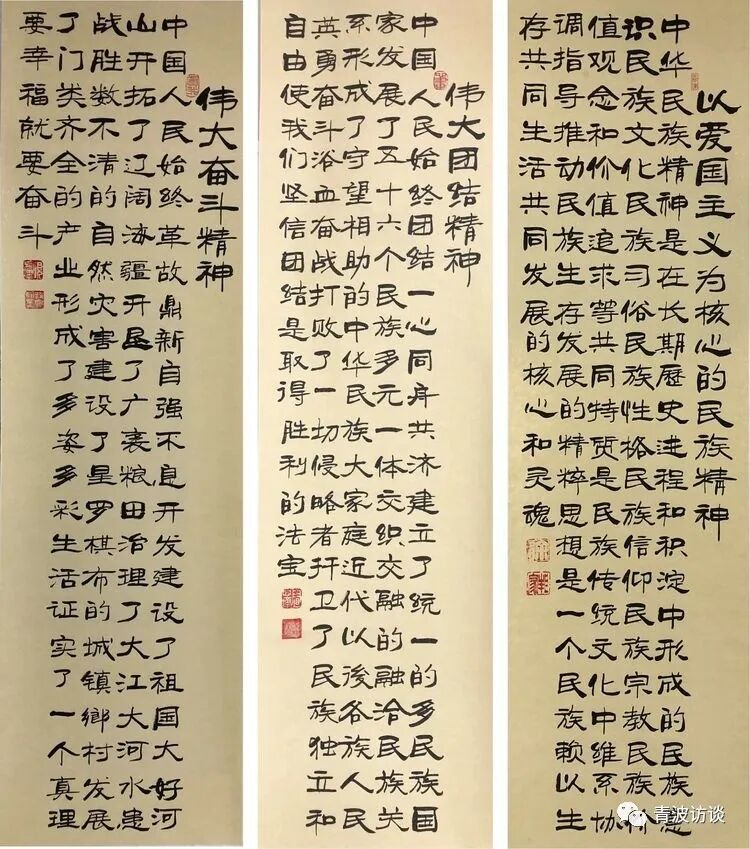 以爱国主义为核心的民族精神
中华民族精神是在长期歷史进程和积淀中形成的民族意
识民族文化民族习俗民族性格民族信仰民族宗教民族价
值观念和价值追求等共同特质是民族传统文化中维系协
调指导推动民族生存发展的精粹思想是一个民族赖以生
存共同生活共同发展的核心和灵魂
伟大团结精神
中国人民始终团结一心同舟共济建立了统一的多民族国
家发展了五十六个民族多元一体交织交融的融洽民族关
系形成了守望相助的中华民族大家庭近代以後各族人民
英勇奋斗浴血奋战打败了一切侵略者扞卫了民族独立和
自由使我们坚信团结是取得胜利的法宝
伟大奋斗精神
中国人民始终革故鼎新自强不息开发建设了祖国大好河
山开拓了辽阔海疆开垦了广袤粮田治理了大江大河水患
战胜数不清的自然灾害建设了星罗棋布的城镇鄉村发展
了门类齐全的产业形成了多姿多彩生活证实了一个真理
要幸福就要奋斗
青波访谈